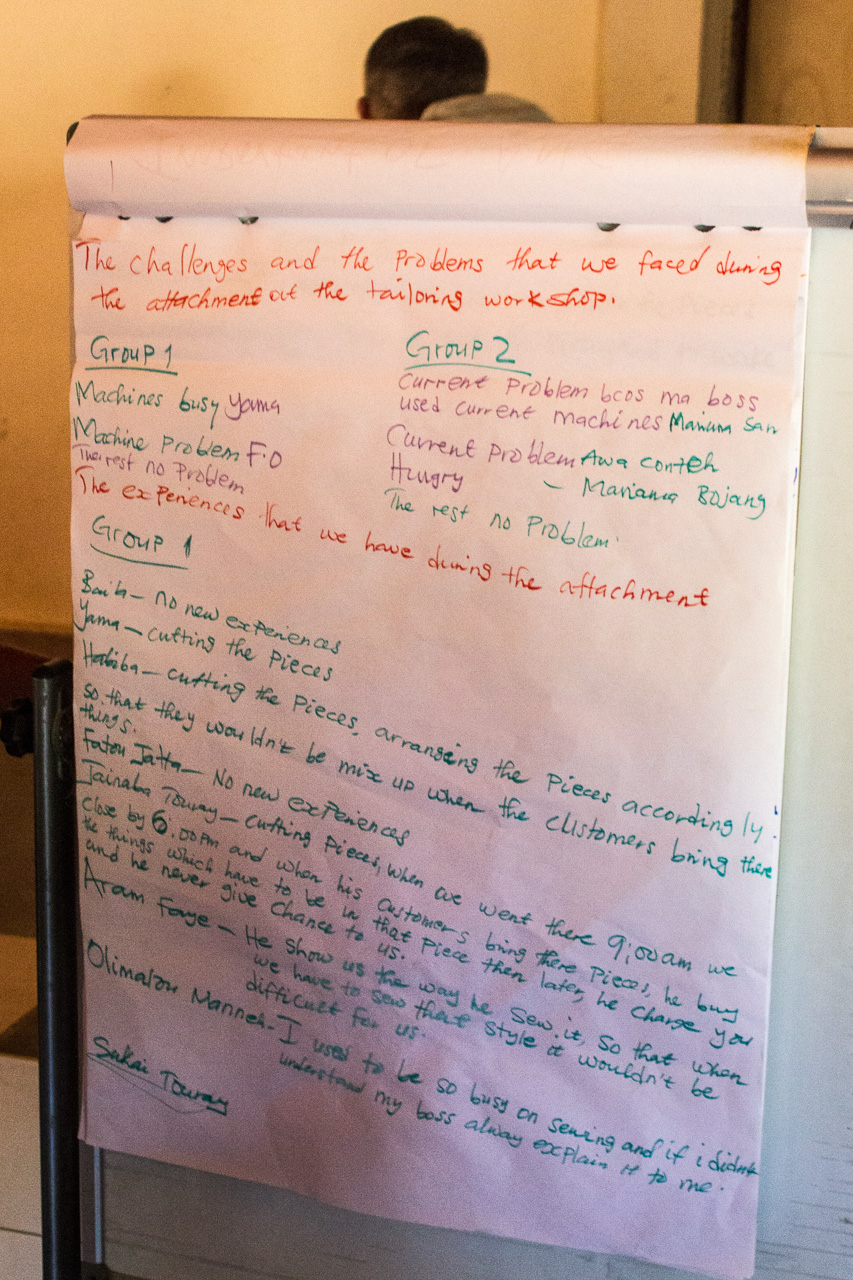 The challenges and the Problems that we faced during
the attachment at the tailoring workshop.
Group 1
Machines busy Yama
Machine Problem F.O
The rest no Problem
Group 2
Current Problem bcos ma boss
used current machines Mariama San
Current Problem Awa conteh
Hungry – Mariama Bojang
The rest no Problem.
The experiences that we have during the attachment
Group 1
no new experiences
Yama – cutting the Pieces
Habiba – cutting the Pieces, arranging the Pieces accordingly
so that they wouldn't be mix up when the customers bring there
things.
Fatou Jatta – No new experiences
Jainaba Touray – cutting Pieces, when we went there 9:00am we
close by 6:00pm and when his customers bring there Pieces, he buy
the things which have to be in that Piece then later, he charge you
and he never give chance to us.
Aram Faye – He show us the way he sew it, so that when
we have to sew that style it wouldn't be
difficult for us.
Olimatou Manneh – I used to be so busy on sewing and if i didn't
understand my boss alway explain it to me.
Sukai Touray